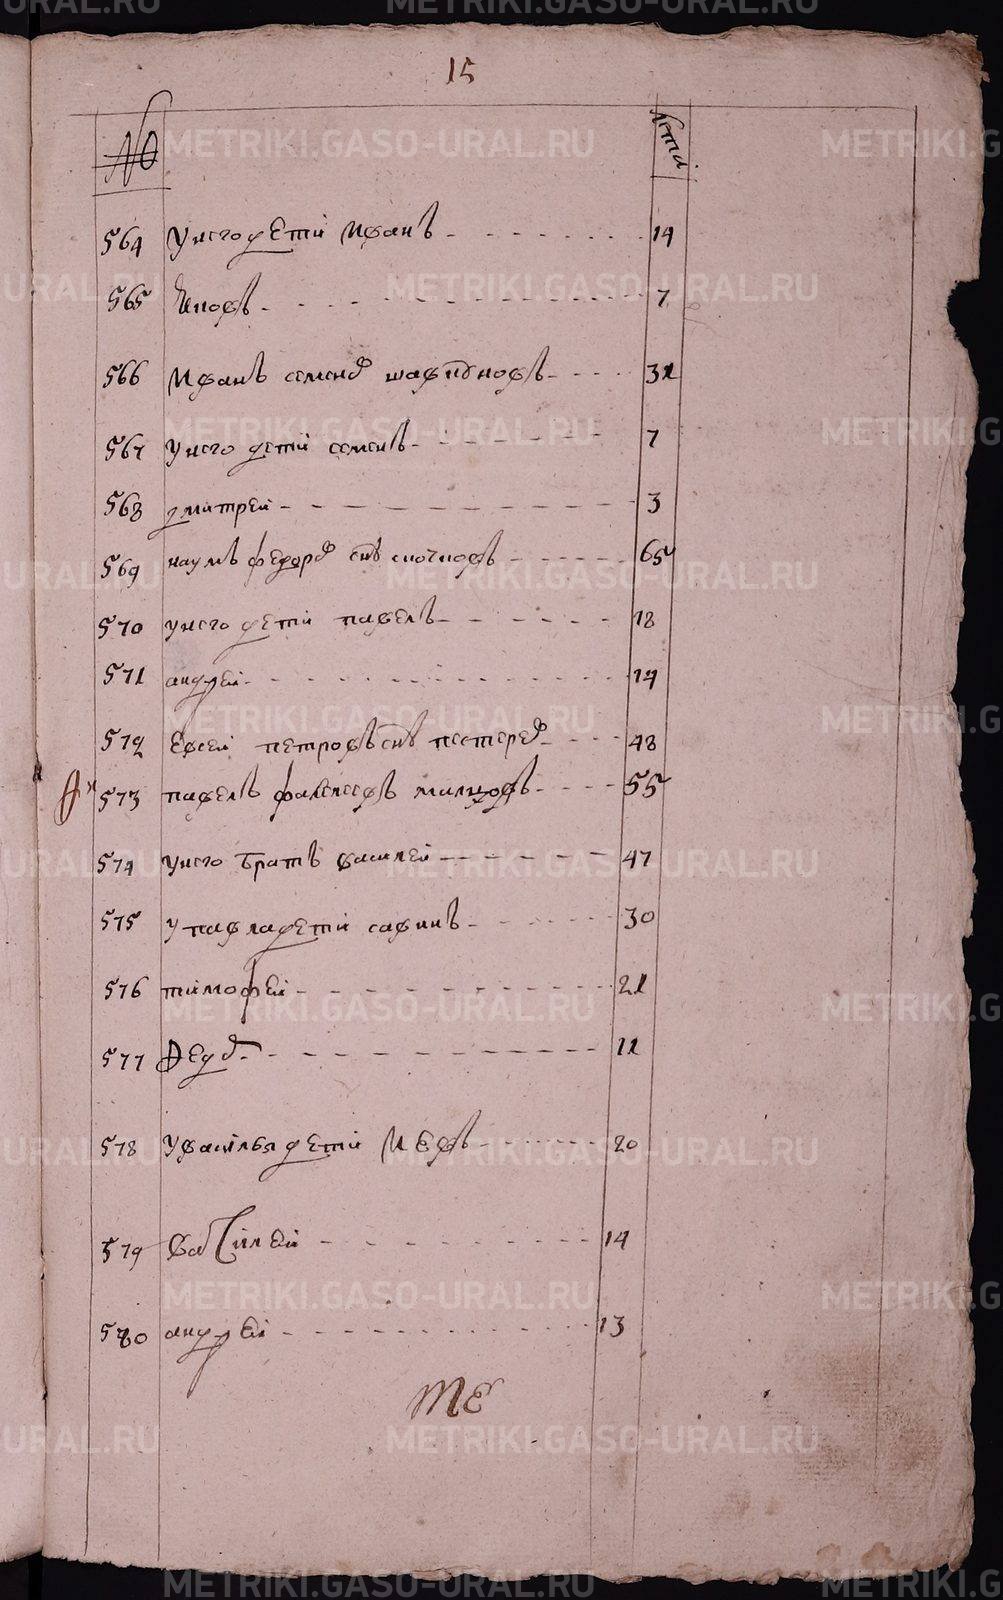 15
№ лета
564 У него дети Иванъ 14
565 Яковъ 7
566 Иванъ семенов 31
567 У него дети семенъ 7
568 дмитрей 3
569 наумъ федоров снъ 65
570 у него дети павелъ 18
571 андрей 14
572 Евсей петровъ снъ пестерев 48
573 павелъ 55
574 У него братъ василей 47
575 У павла дети савинъ 30
576 тимофей 21
577 Федо 11
578 У василья дети 20
579 Василей 14
580 андрей 13
METRIKI.GASO-URAL.RU